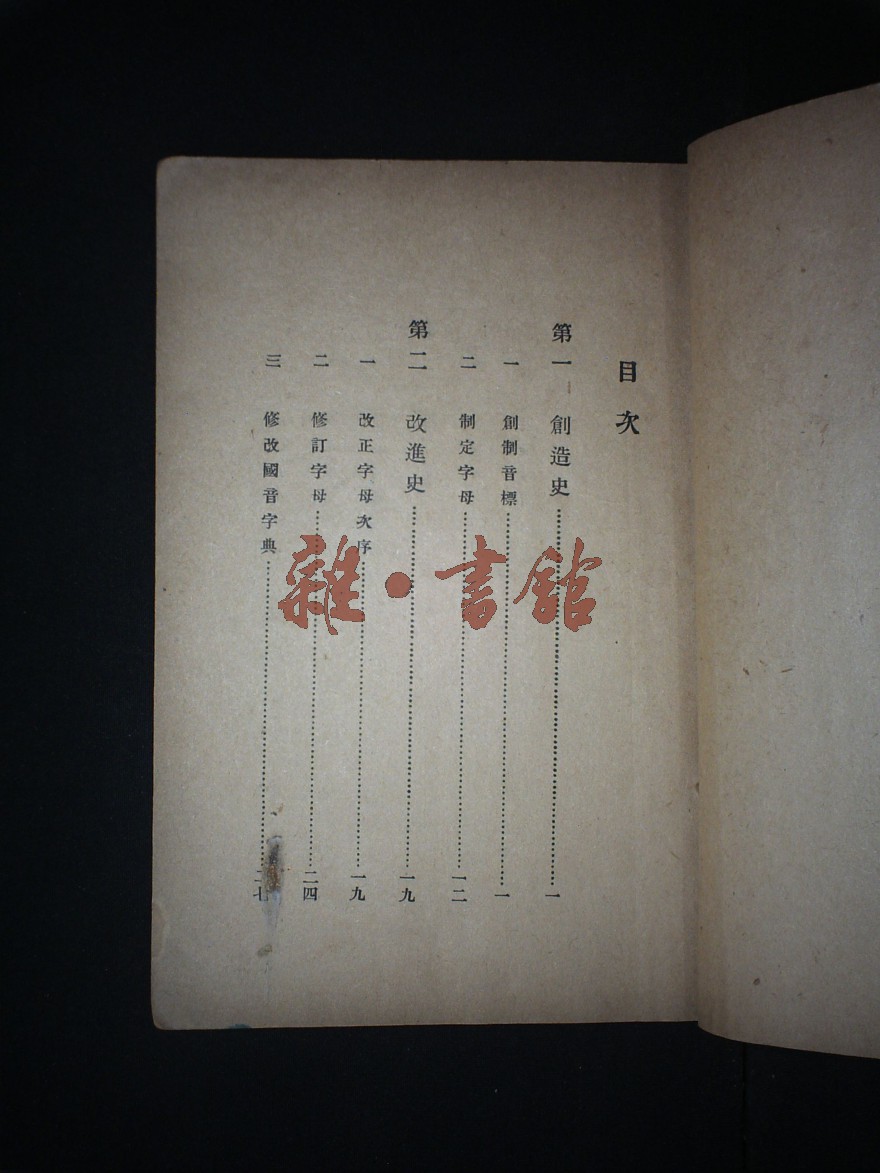 目次
第一 創造史……一
一 創制音標……一
二 制定字母……一二
第二 改進史……一九
一 改正字母次序……一九
二 修訂字母……二四
三 修改國音字典……二七
雜·書館